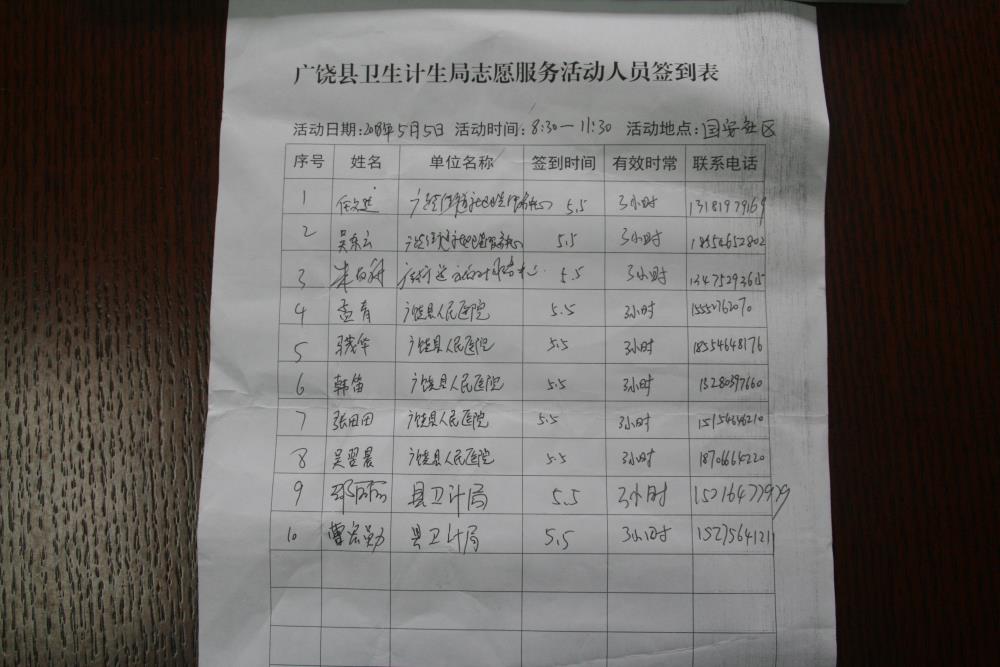 广饶县卫生计生局志愿服务活动人员签到表
活动日期:2018年5月5日 活动时间:8:30—11:30 活动地点:国安社区
序号 姓名 单位名称 签到时间 有效时常 联系电话
1 5.5 3小时 13181979169
2 吴东云 5.5 3小时 18554652802
3 5.5 3小时 13475293615
4 孟青 广饶县人民医院 5.5 3小时 15552762070
5 广饶县人民医院 5.5 3小时 18554648176
6 韩笛 广饶县人民医院 5.5 3小时 13280397660
7 张田田 广饶县人民医院 5.5 3小时 15154646210
8 吴翌晨 广饶县人民医院 5.5 3小时 18706664220
9 县卫计局 5.5 3小时
10 县卫计局 5.5 3小时